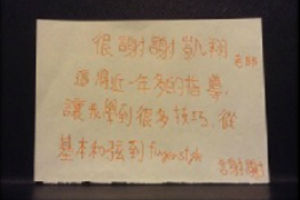 很謝謝凱翔老師
這將近一年多的指導,
讓我學到很多技巧,從
基本和弦到fingerstyle
謝謝